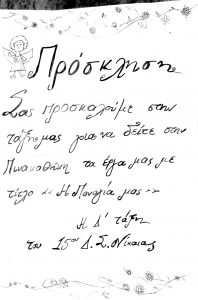 Πρόσκληση
Σας προσκαλούμε στην
τάξη μας για να δείτε στην
Πινακοθήκη τα έργα μας με
τίτλο << Η Παναγία μας >>
Η Δ' τάξη
του 15ου Δ.Σ. Νίκαιας